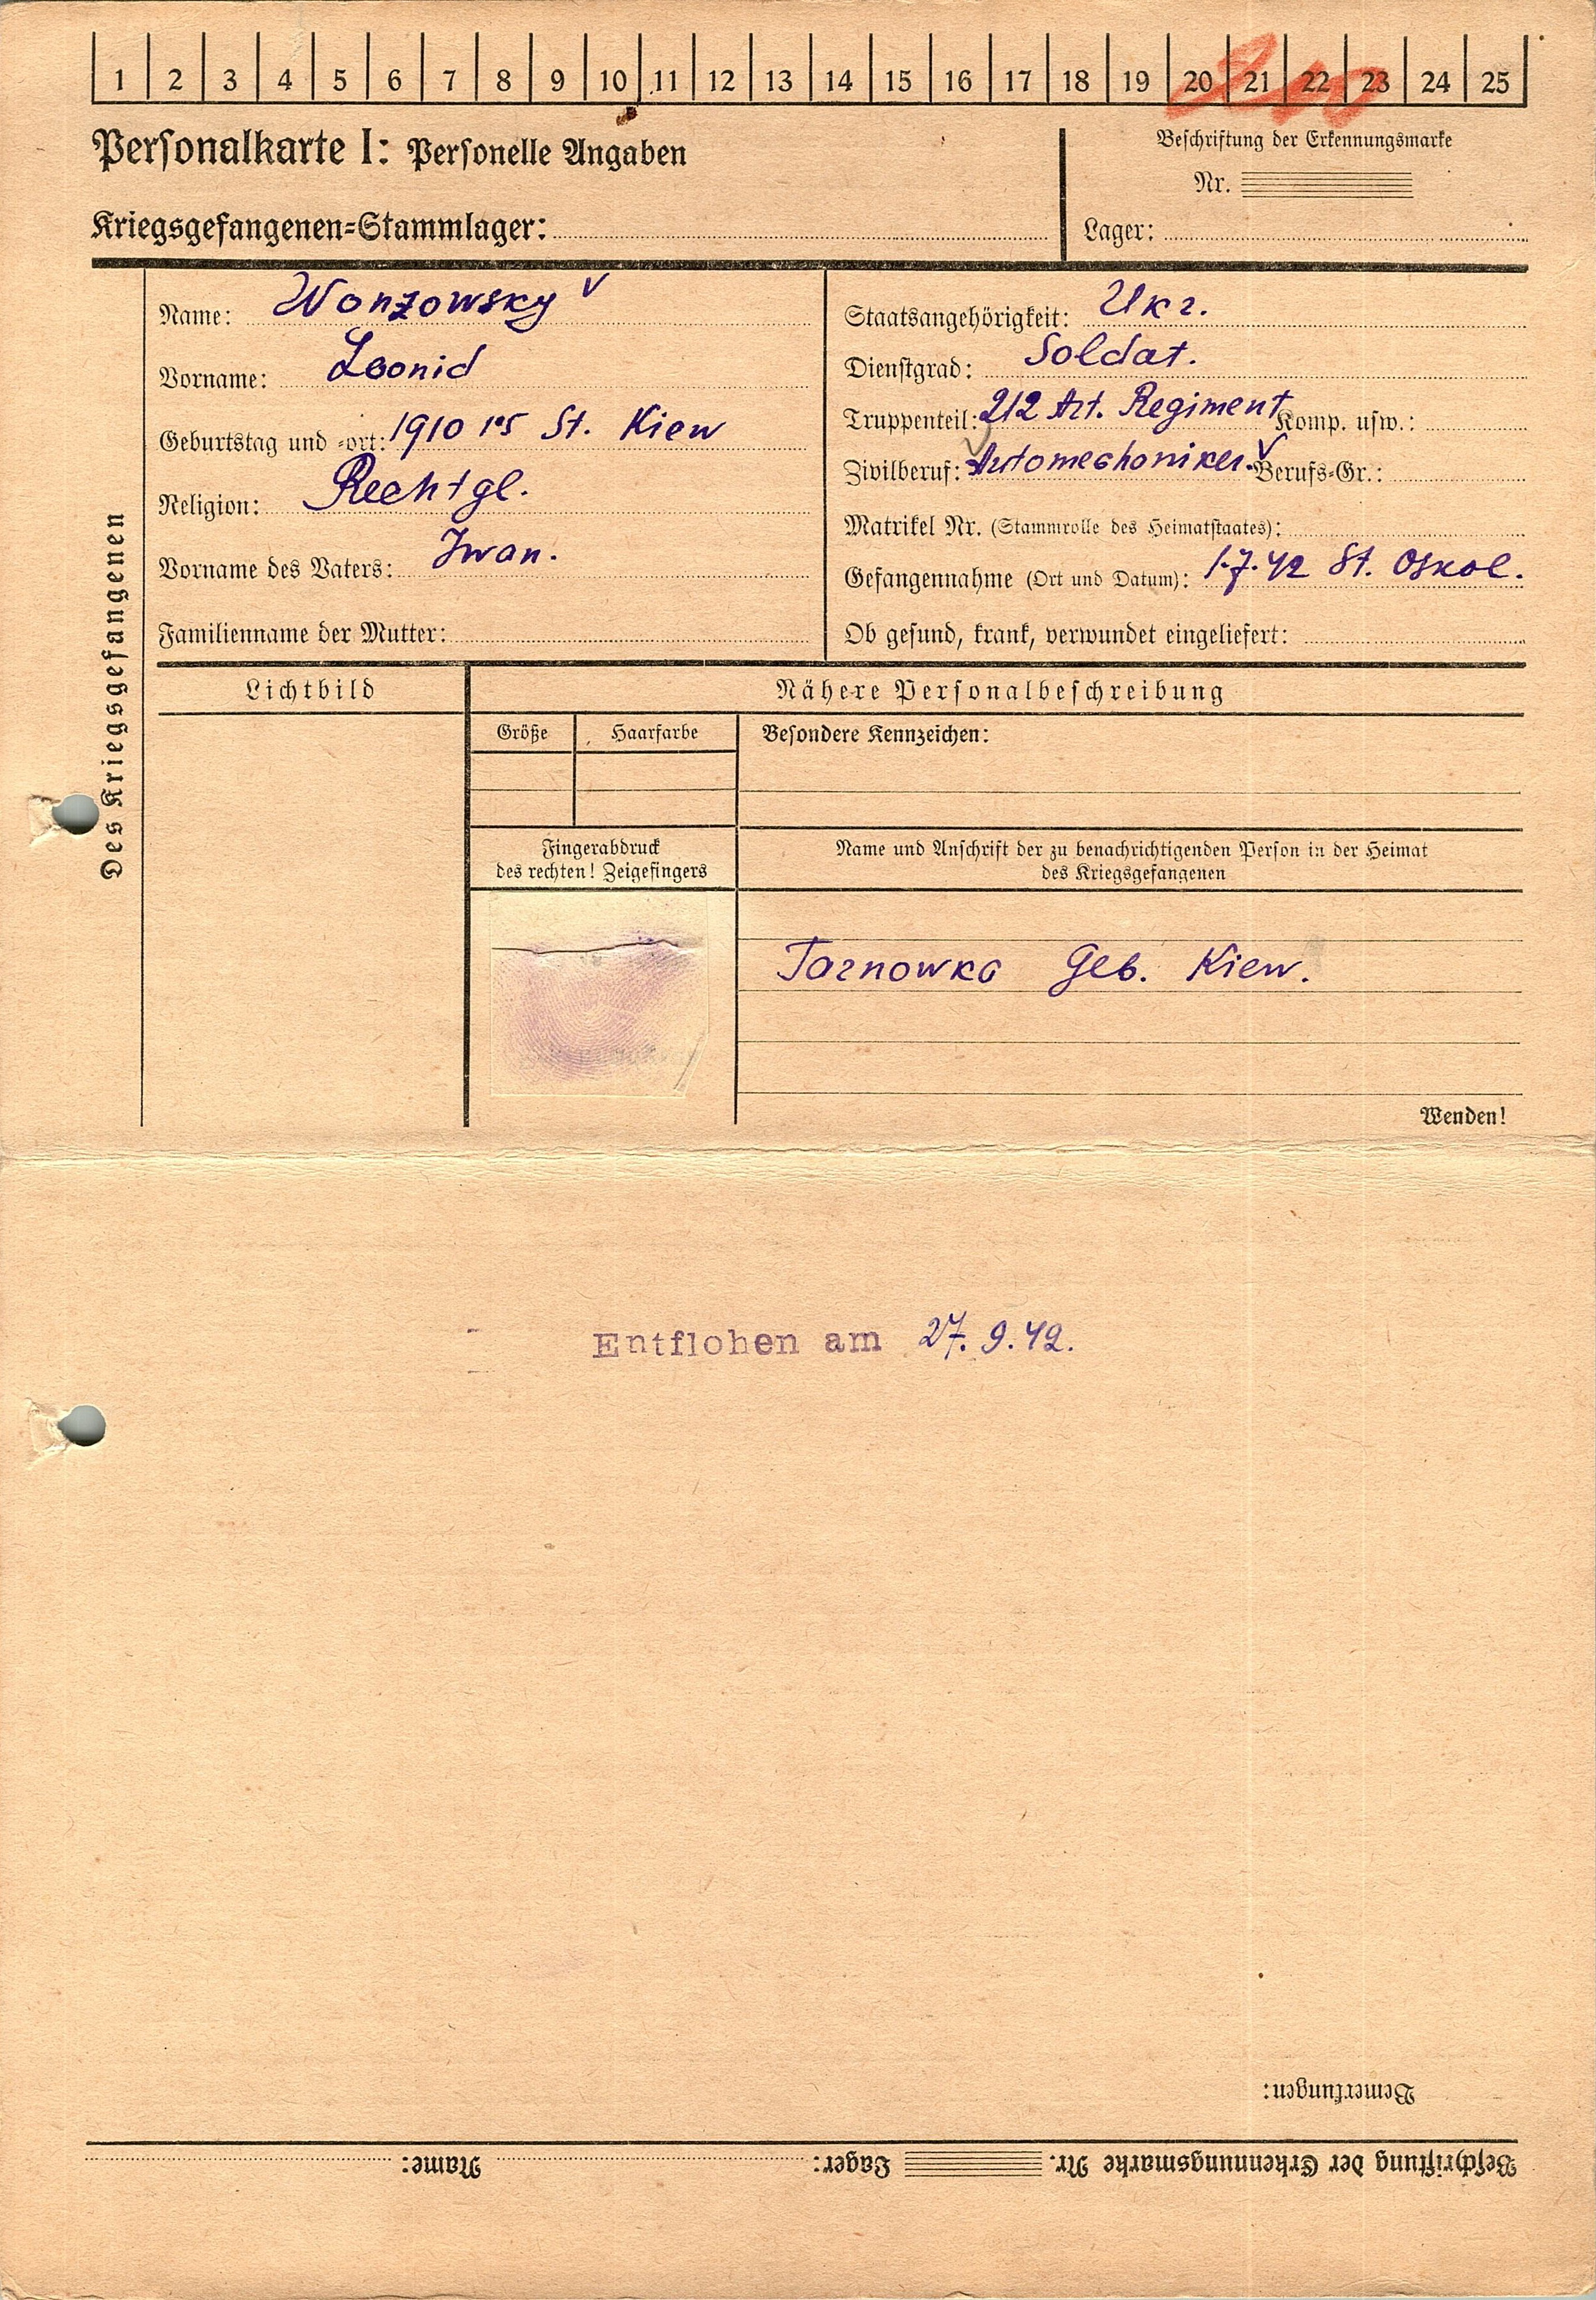 1 2 3 4 5 6 7 8 9 10 11 12 13 14 15 16 17 18 19 20 21 22 23 24 25
Personalkarte I: Personelle Angaben
Beschriftung der Erkennungsmarke
Nr.
Kriegsgefangenen-Stammlager:
Lager:
Des Kriegsgefangenen
Name: Wonzowsky
Vorname: Leonid
Geburtstag und -ort: 1910 St. Kiew
Religion: Rechtgl.
Vorname des Vaters: Iwan.
Familienname der Mutter:
Staatsangehörigkeit: Ukr.
Dienstgrad: Soldat.
Truppenteil: 212 Art. Regiment Komp. usw.:
Zivilberuf: Automechaniker. Berufs-Gr.:
Matrikel Nr. (Stammrolle des Heimatstaates):
Gefangennahme (Ort und Datum): 1.7.42 St. Oskol.
Ob gesund, krank, verwundet eingeliefert:
Lichtbild
Nähere Personalbeschreibung
Größe
Haarfarbe
Besondere Kennzeichen:
Fingerabdruck
des rechten! Zeigefingers
Name und Anschrift der zu benachrichtigenden Person in der Heimat
des Kriegsgefangenen
Tarnowka Geb. Kiew.
Wenden!
Entflohen am 27.9.42.
Bemerkungen:
Beschriftung der Erkennungsmarke Nr. Lager: Name: